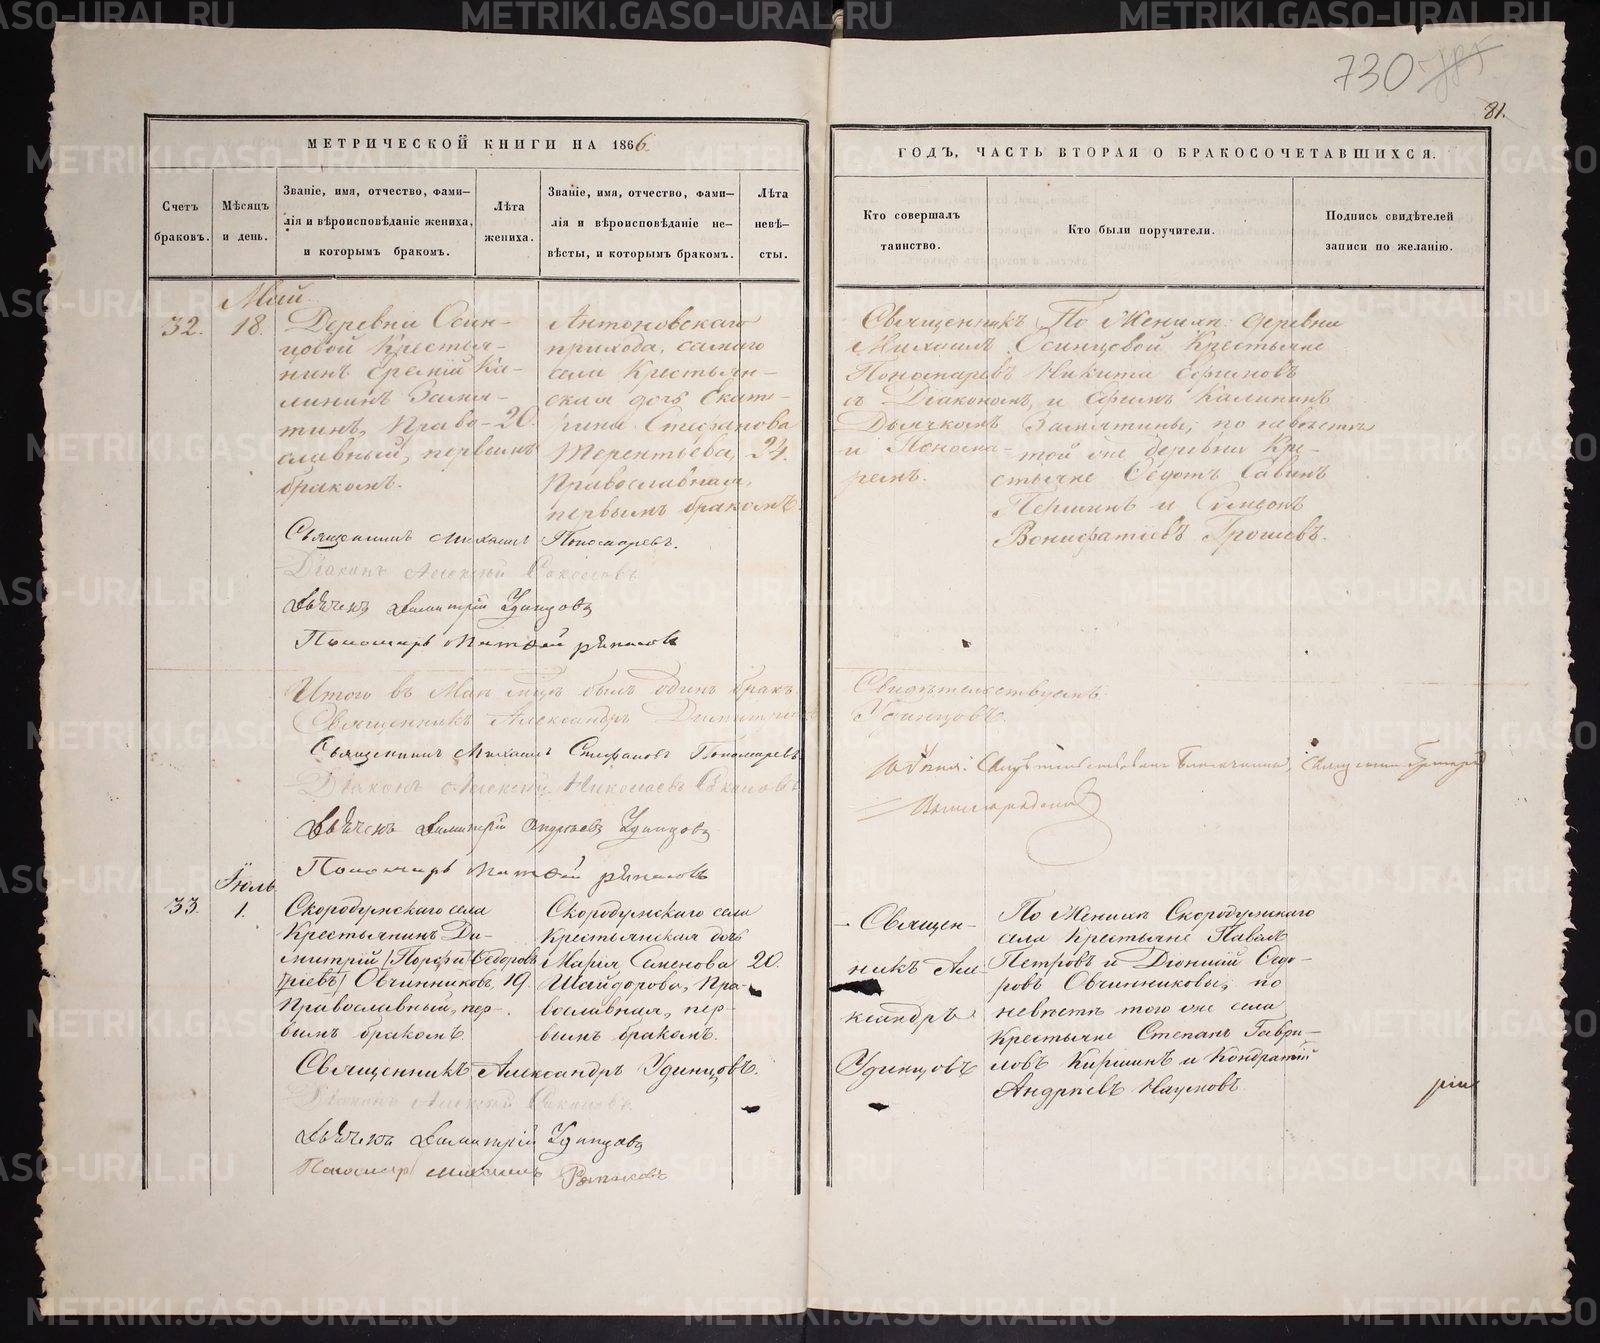 730
81.
МЕТРИЧЕСКОЙ КНИГИ НА 1866.
ГОДЪ, ЧАСТЬ ВТОРАЯ О БРАКОСОЧЕТАВШИХСЯ.
Счетъ
браковъ.
Мѣсяцъ
и день.
Званіе, имя, отчество, фами-
лія и вѣроисповѣданіе жениха,
и которымъ бракомъ.
Лѣта
жениха.
Званіе, имя, отчество, фами-
лія и вѣроисповѣданіе не-
вѣсты, и которымъ бракомъ.
Лѣта
невѣ-
сты.
Кто совершалъ
таинство.
Кто были поручители.
Подпись свидѣтелей
записи по желанію.
32.
Май
18.
Деревни Осин-
цовой Крестья-
нинъ Ка-
лининъ Замя-
тинъ, Право-
славный, первымъ
бракомъ.
20.
Антоновскаго
прихода, самаго
села Крестьян-
ская дочь Екате-
рина Стефанова
Терентьева,
Православная,
первымъ бракомъ.
24.
Священникъ
Михаилъ
Пономаревъ
съ Діакономъ,
Дьячкомъ
и Понома-
ремъ.
По Женихѣ: деревни
Осинцовой Крестьяне
Никита Ефимовъ
и Ефимъ Калининъ
Замятины; по невѣстѣ
той же деревни Кре-
стьяне Ѳедотъ Савинъ
и
Вонифатіевъ
Священникъ Михаилъ Пономаревъ.
Діаконъ Алексѣй Соколовъ
Дьячекъ Димитрій Удинцовъ
Пономарь
Итого въ Маѣ мцѣ былъ одинъ бракъ.
Священникъ Александръ Димитріевъ
Священникъ Михаилъ Стефановъ Пономаревъ
Діаконъ Алексѣй Николаевъ Соколовъ
Дьячекъ Димитрій Андреевъ Удинцовъ
Пономарь
Свидѣтельствуемъ
Удинцовъ.
Іюль
33.
1.
Скородумскаго села
Крестьянинъ Ди-
митрій (Порфи Ѳедоровъ
ріевъ) Овчинниковъ,
Православный, пер-
вымъ бракомъ.
19.
Скородумскаго села
Крестьянская дочь
Марія Семенова
Шайдорова, Пра-
вославная, пер-
вымъ бракомъ.
20.
Священ-
никъ Але-
ксандръ
Удинцовъ
По Женихѣ Скородумскаго
села Крестьяне Павелъ
Петровъ и Діонисій Ѳедо-
ровъ Овчинниковы; по
невѣстѣ того же села
Крестьяне Степанъ Гаври-
ловъ Киршинъ и Кондратій
Андреевъ Науновъ.
Священникъ Александръ Удинцовъ.
Діаконъ Алексѣй Соколовъ.
Дьячекъ Димитрій Удинцовъ
Пономарь
METRIKI.GASO-URAL.RU